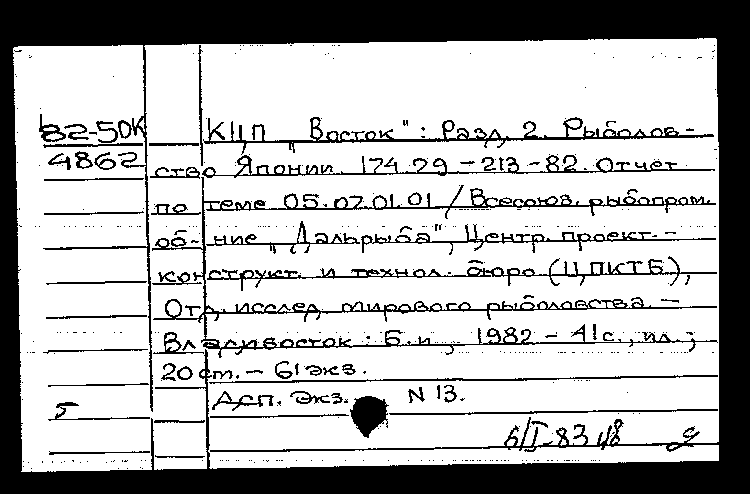 82-5ОК КЦП „Восток": Разд. 2. Рыболов-
4862 ство Японии. 174.79-213-82. Отчет
по теме 05.07.01.01/Всесоюз. рыбопром.
об-ние „Дальрыба", Центр. проект.-
конструкт. и технол. бюро (ЦПКТБ),
Отд. исслед. мирового рыболовства. -
Владивосток: Б.и., 1982 - 41с., ил.;
20 cm. - 61 экз.
5 Дсп. Экз. N 13.
6/I-83